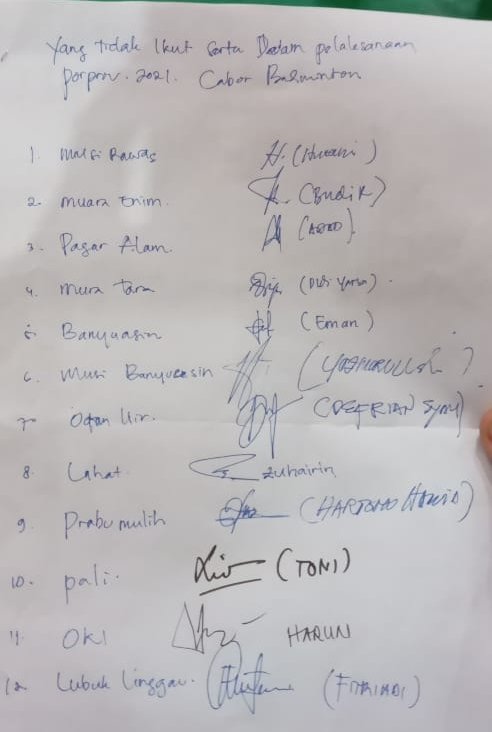 Yang tidak Ikut Serta Dalam pelaksanaan
Porprov. 2021. Cabor Badminton
1. Musi Rawas (Husani)
2. Muara Enim. (Budi R)
3. Pagar Alam.
4. Mura tara (Dwi Yansa).
5. Banyuasin (Eman)
6. Musi Banyuasin
7. Ogan Ilir. (DEFRIAN Syah)
8. Lahat. Zuhairin
9. Prabumulih (HARTONO HAMID)
10. pali. (TONI)
11. OKI HARUN
12. Lubuk Linggau. (FITRIADI)